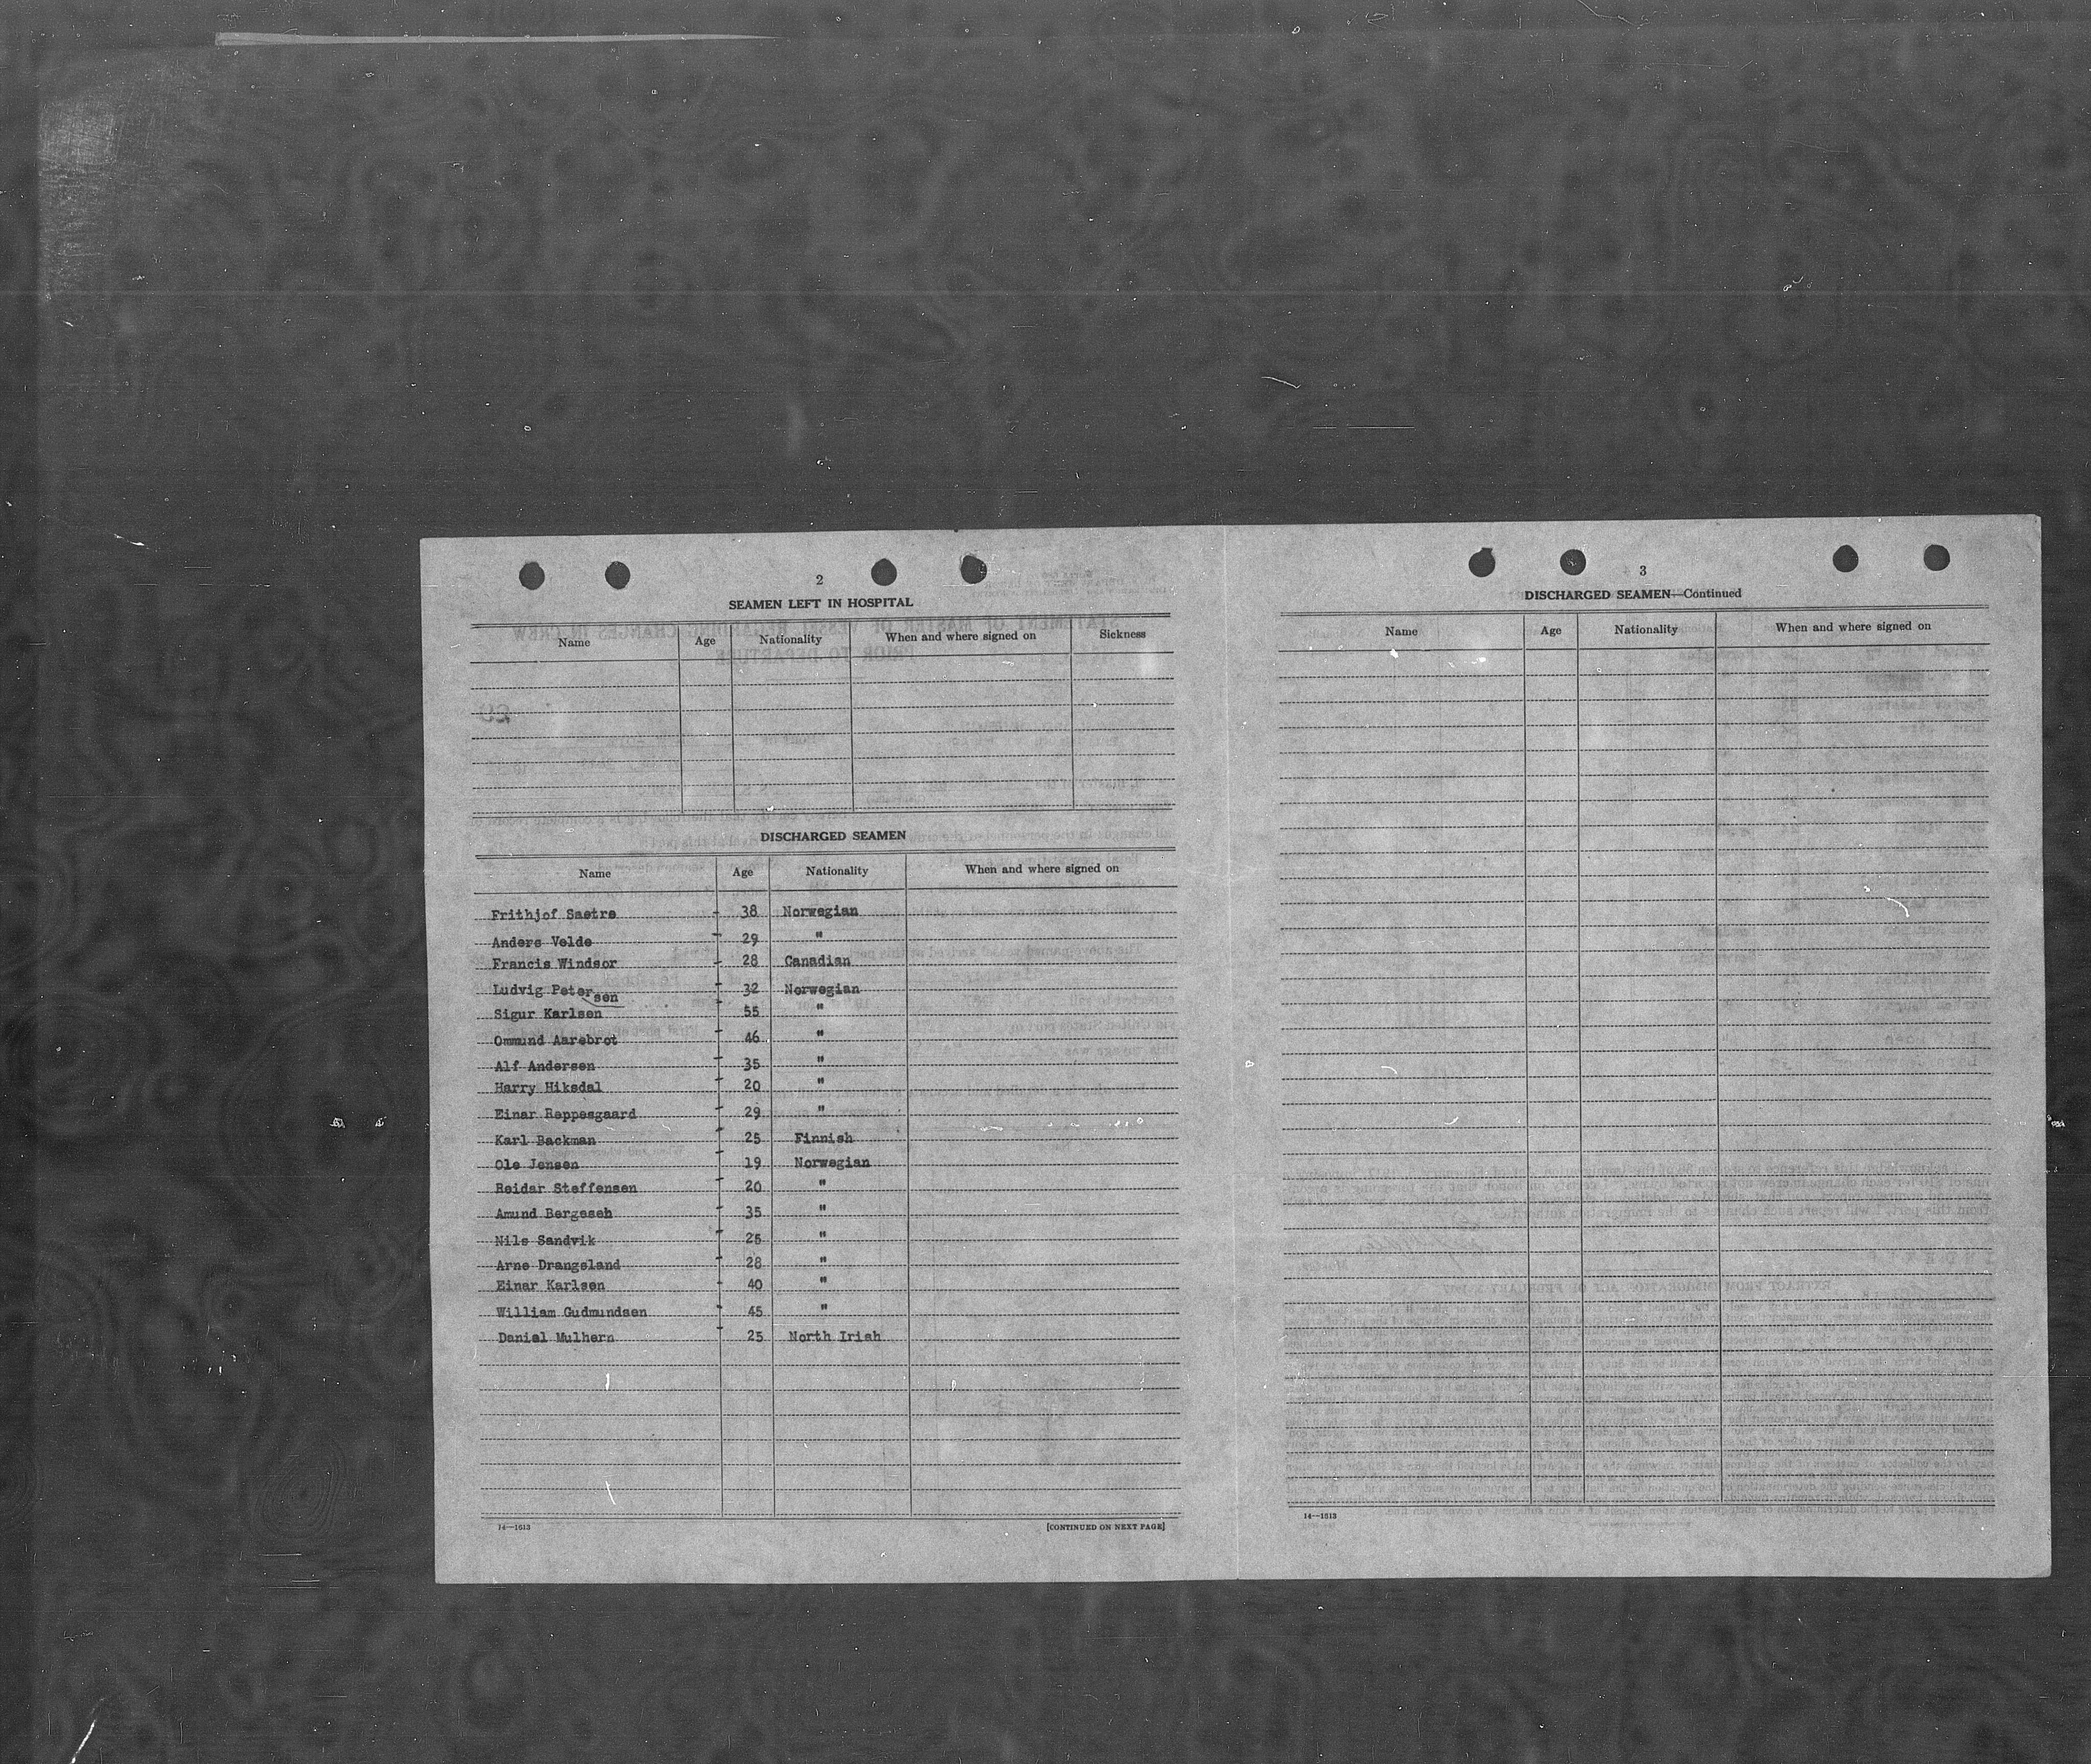 2
SEAMEN LEFT IN HOSPITAL
Name Age Nationality When and where signed on Sickness
DISCHARGED SEAMEN
Name Age Nationality When and where signed on
Frithjof Saetre 38 Norwegian
Anders Velde 29 "
Francis Windsor 28 Canadian
Ludvig Petersen 32 Norwegian
Sigur Karlsen 55 "
Ommund Aarebrot 46 "
Alf Andersen 35 "
Harry Hiksdal 20 "
Einar Reppesgaard 29 "
Karl Backman 25 Finnish
Ole Jensen 19 Norwegian
Reidar Steffensen 20 "
Amund Bergeseh 35 "
Nils Sandvik 25 "
Arne Drangsland 28 "
Einar Karlsen 40 "
William Gudmundsen 45 "
Daniel Mulhern 25 North Irish
14—1613 [CONTINUED ON NEXT PAGE]
3
DISCHARGED SEAMEN—Continued
Name Age Nationality When and where signed on
14—1613